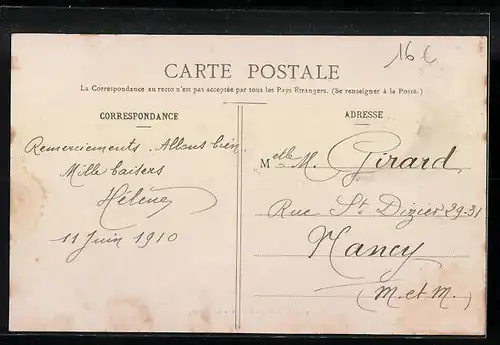 16 €
CARTE POSTALE
La Correspondance au recto n'est pas acceptée par tous les Pays Étrangers. (Se renseigner à la Poste.)
CORRESPONDANCE
Remerciements. Allons bien.
Mille baisers
Hélène
11 Juin 1910
ADRESSE
Melle M. Girard
Rue St. Dizier 29-31
Nancy
(M. et M.)